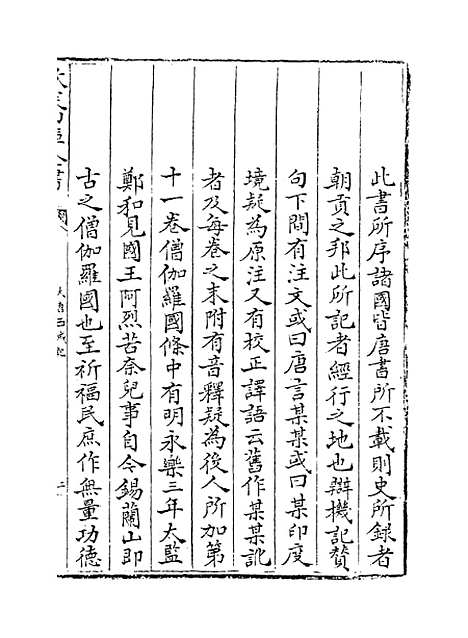 此書所序諸國皆唐書所不載則史所録者
朝貢之邦此所記者經行之地也辯機記賛
句下間有注文或曰唐言某某或曰某印度
境疑為原注又有校正譯語云舊作某某訛
者及每卷之末附有音釋疑為後人所加第
十一卷僧伽羅國條中有明永樂三年太監
鄭和見國王阿烈苦奈兒事自今錫蘭山即
古之僧伽羅國也至祈福民庶作無量功徳